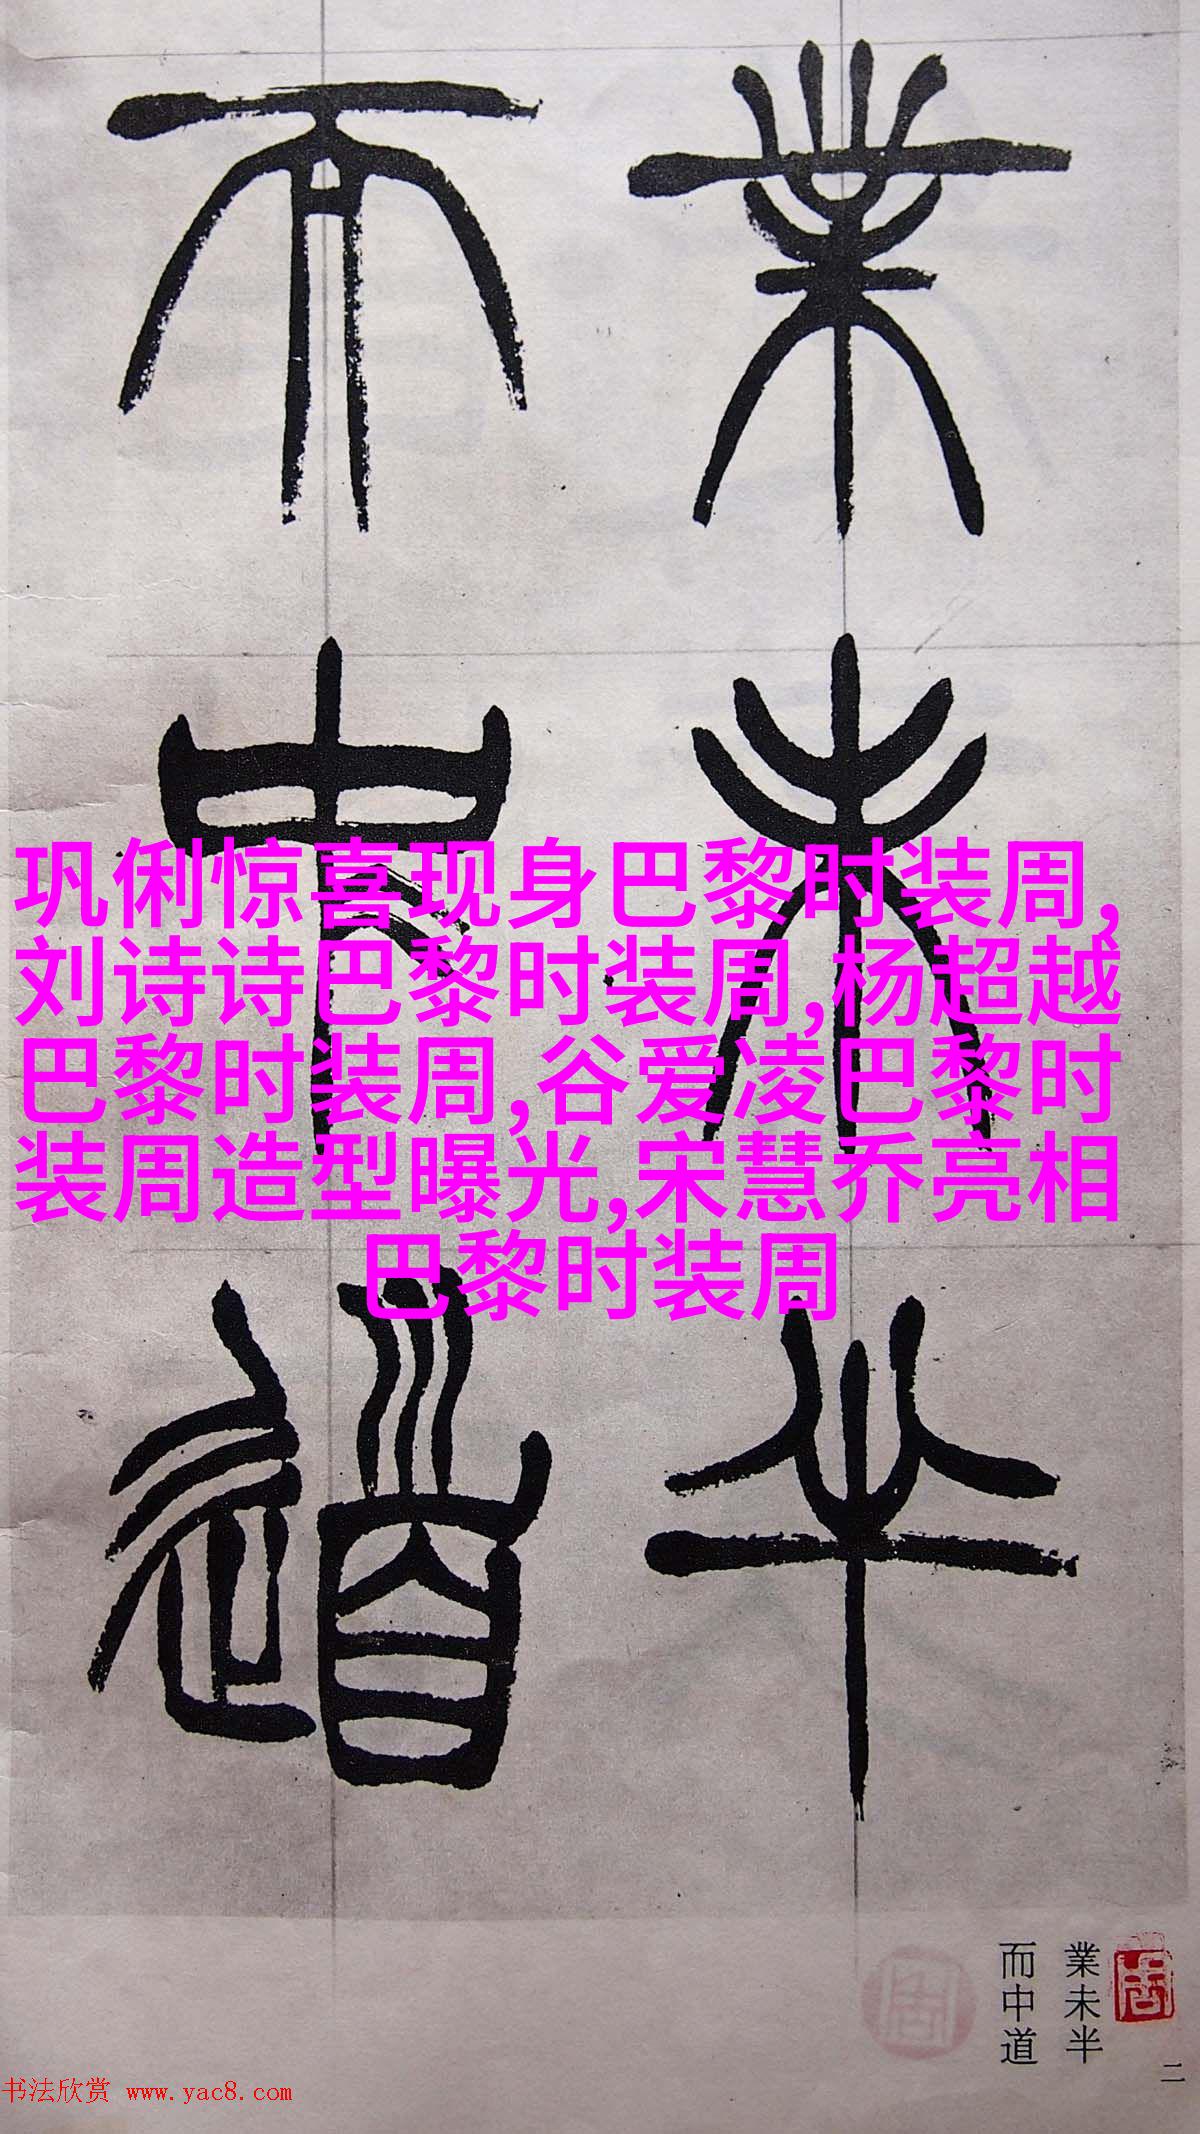 業未半
而中道
巩俐惊喜现身巴黎时装周,
刘诗诗巴黎时装周,杨超越
巴黎时装周,谷爱凌巴黎时
装周造型曝光,宋慧乔亮相
巴黎时装周
業未半
而中道
二
书法欣赏 www.yac8.com